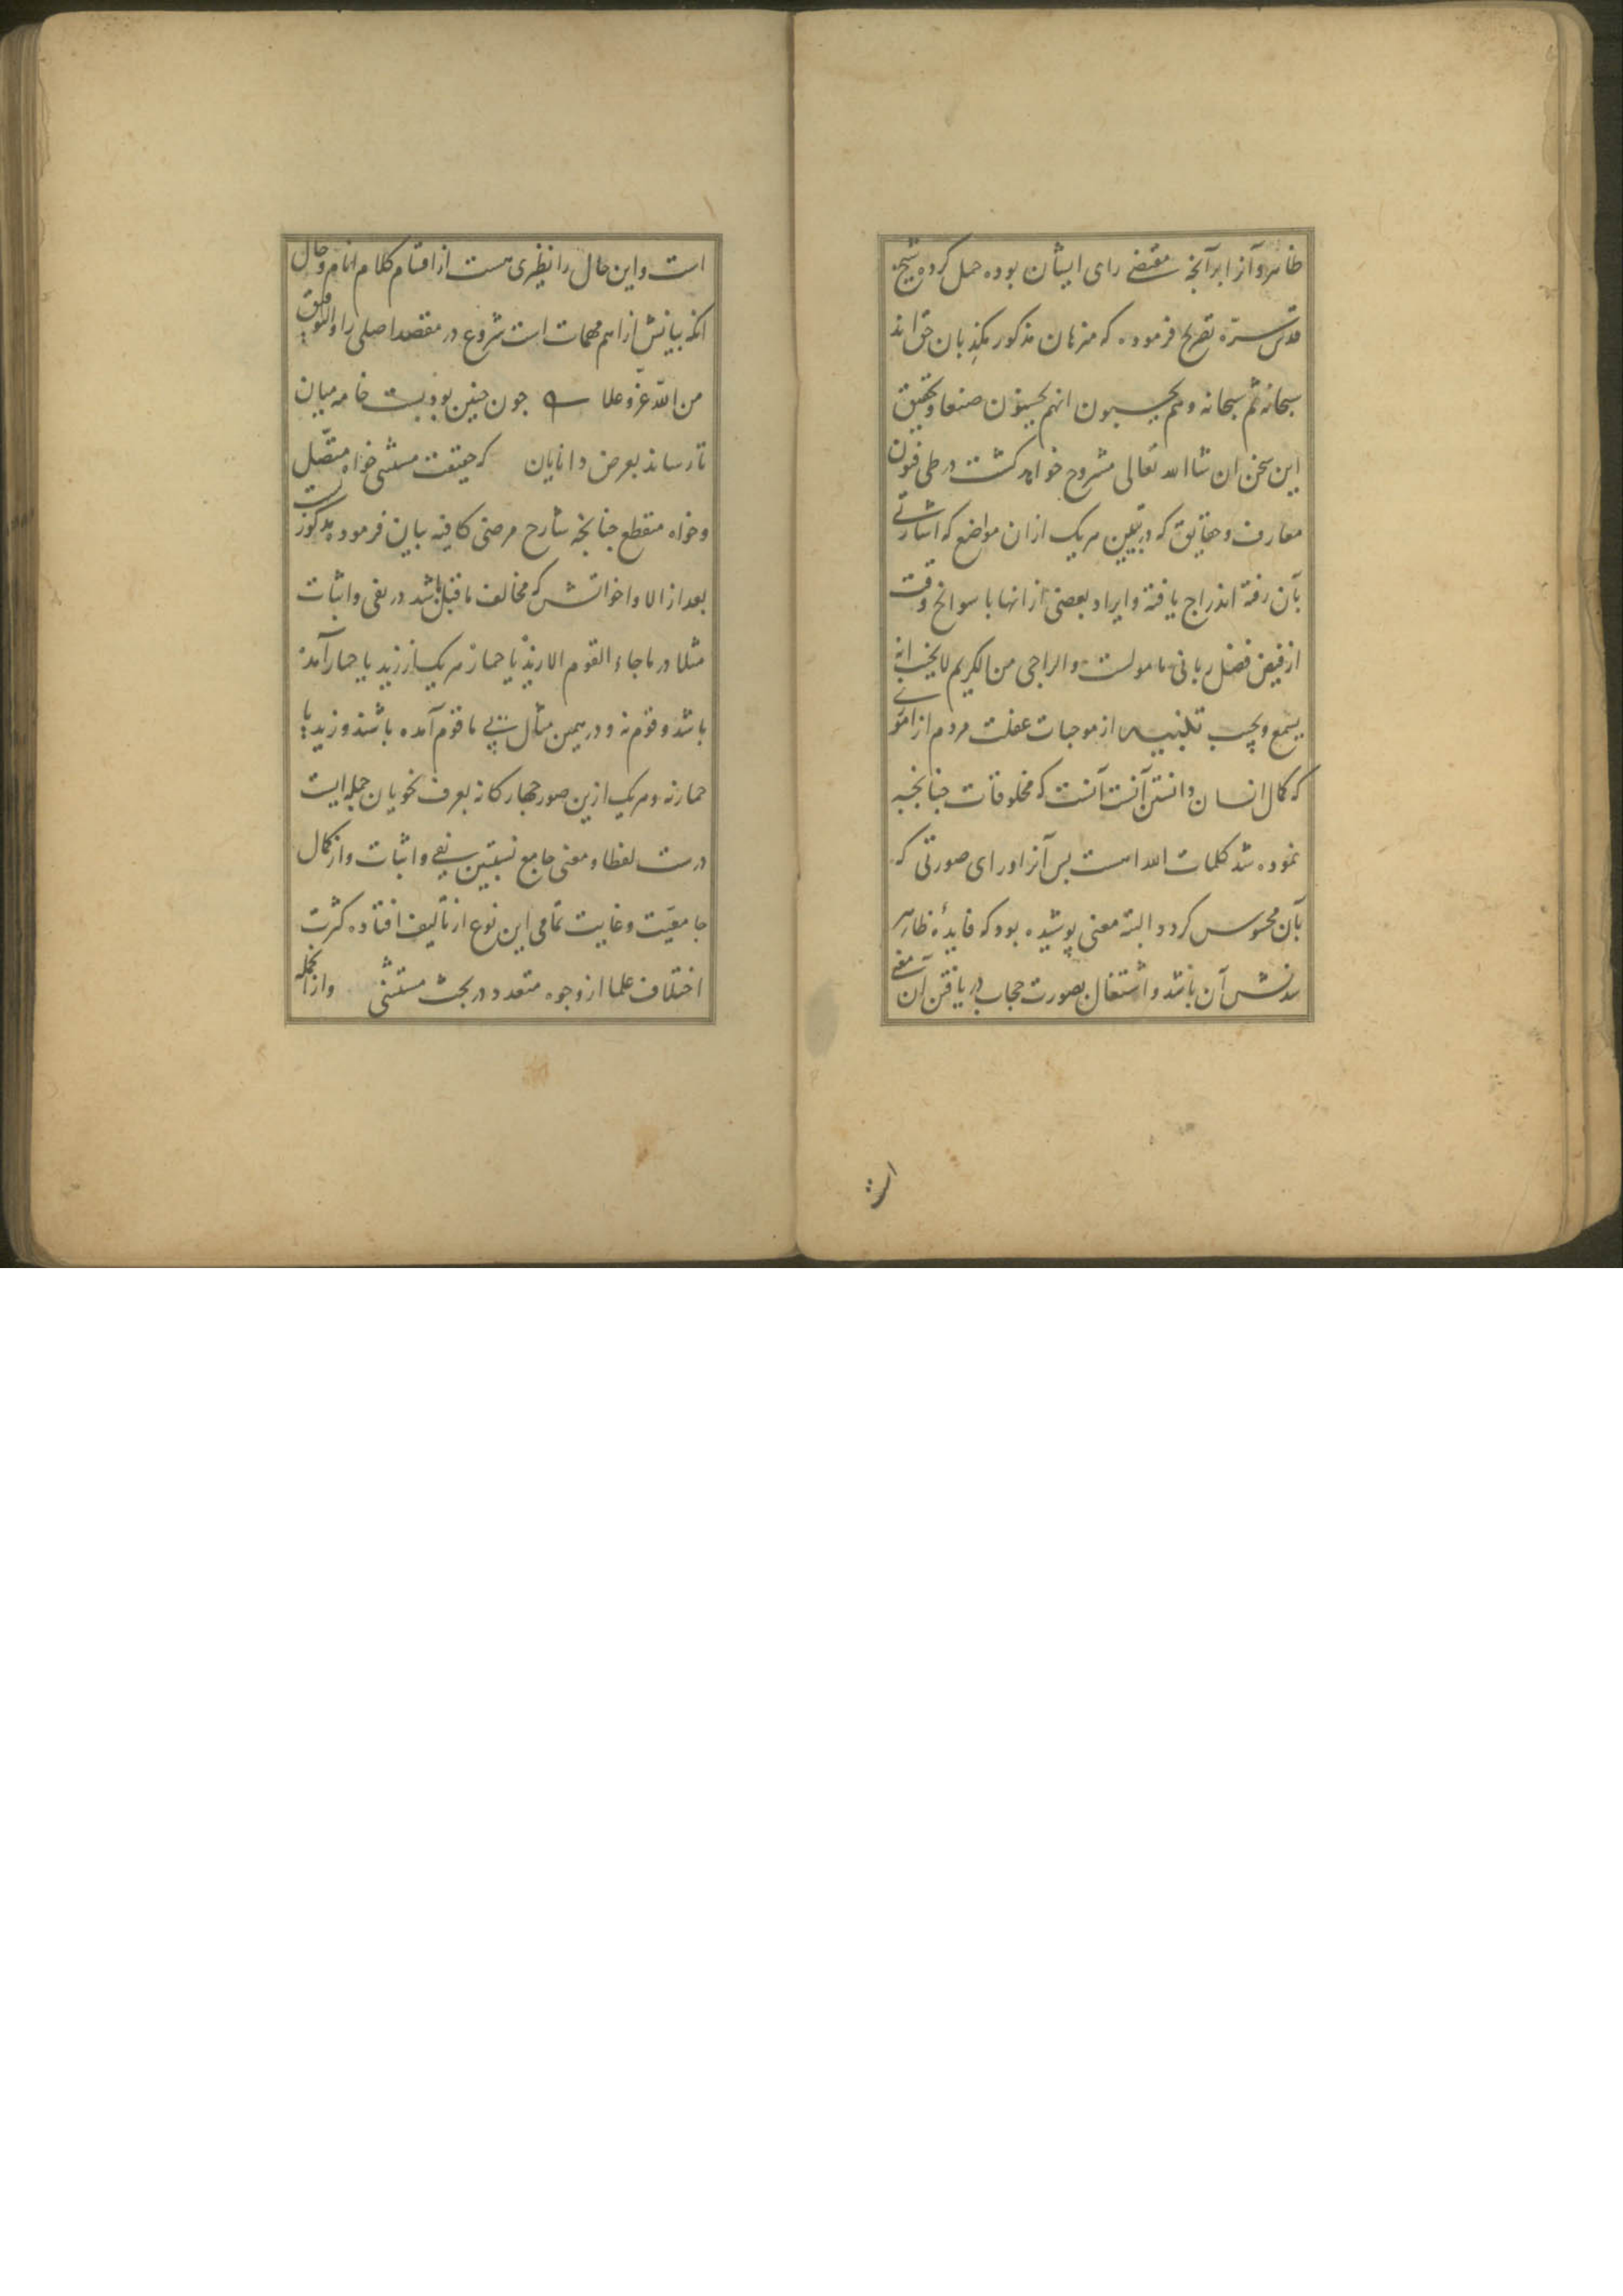 ظاهر و آنرا بر آنچه مقتضی رای ایشان بوده حمل کرده شیخ
قدس سرّه تصریح فرموده که منزهان مذکور مکذبان حق اند
سبحانه ثم سبحانه و هم یحسبون انهم یحسنون صنعا و تحقیق
این سخن ان شاالله تعالی مشروح خواهد کشت در طی فنون
معارف و حقایق که در تبیین هر یک ازان مواضع که اشارتی
بآن رفته اندراج یافته و ایراد بعضی از انها با سوانح وقت
از فیض فضل ربانی مامولست و الراجی من الکریم لا یخیب انه
یسمع و یجیب تنبیه از موجبات غفلت مردم از امور
که کمال انسان دانستن آنست آنست که مخلوقات چنانچه
نموده شد کلمات الله است پس آنرا ورای صورتی که
بآن محسوس کردد البته معنی پوشیده بود که فایدۀ ظاهر
شدنش آن باشد و اشتغال بصورت حجاب دریافتن آن معنی
است
است و این حال را نظیری هست از اقسام کلام انام و حال
انکه بیانش از اهم مهمات است شروع در مقصد اصلی را و التوفیق
من الله عزّ و علا جون چنین بود بست خامه میان
تا رساند بعرض دانایان که حقیقت مستثنی خواه متّصل
و خواه منقطع چنانچه شارح مرضی کافیه بیان فرموده مذکوریست
بعد از الا و اخواتش که مخالف ماقبل باشد در نفی و اثبات
مثلا در ما جاء القوم الا زیدٌ یا حمارٌ هر یک از زید یا حمار آمده
باشد و قوم نه و در همین مثال بی ما قوم آمده باشند و زید یا
حمار نه و هر یک ازین صور جهارکانه بعرف نحویان جمله ایست
درست لفظا و معنی جامع نسبتین نفی و اثبات و از کمال
جامعیّت و غایت تمامی این نوع از تألیف افتاده کثرت
اختلاف علما از وجوه متعدد در بحث مستثنی و از انجمله